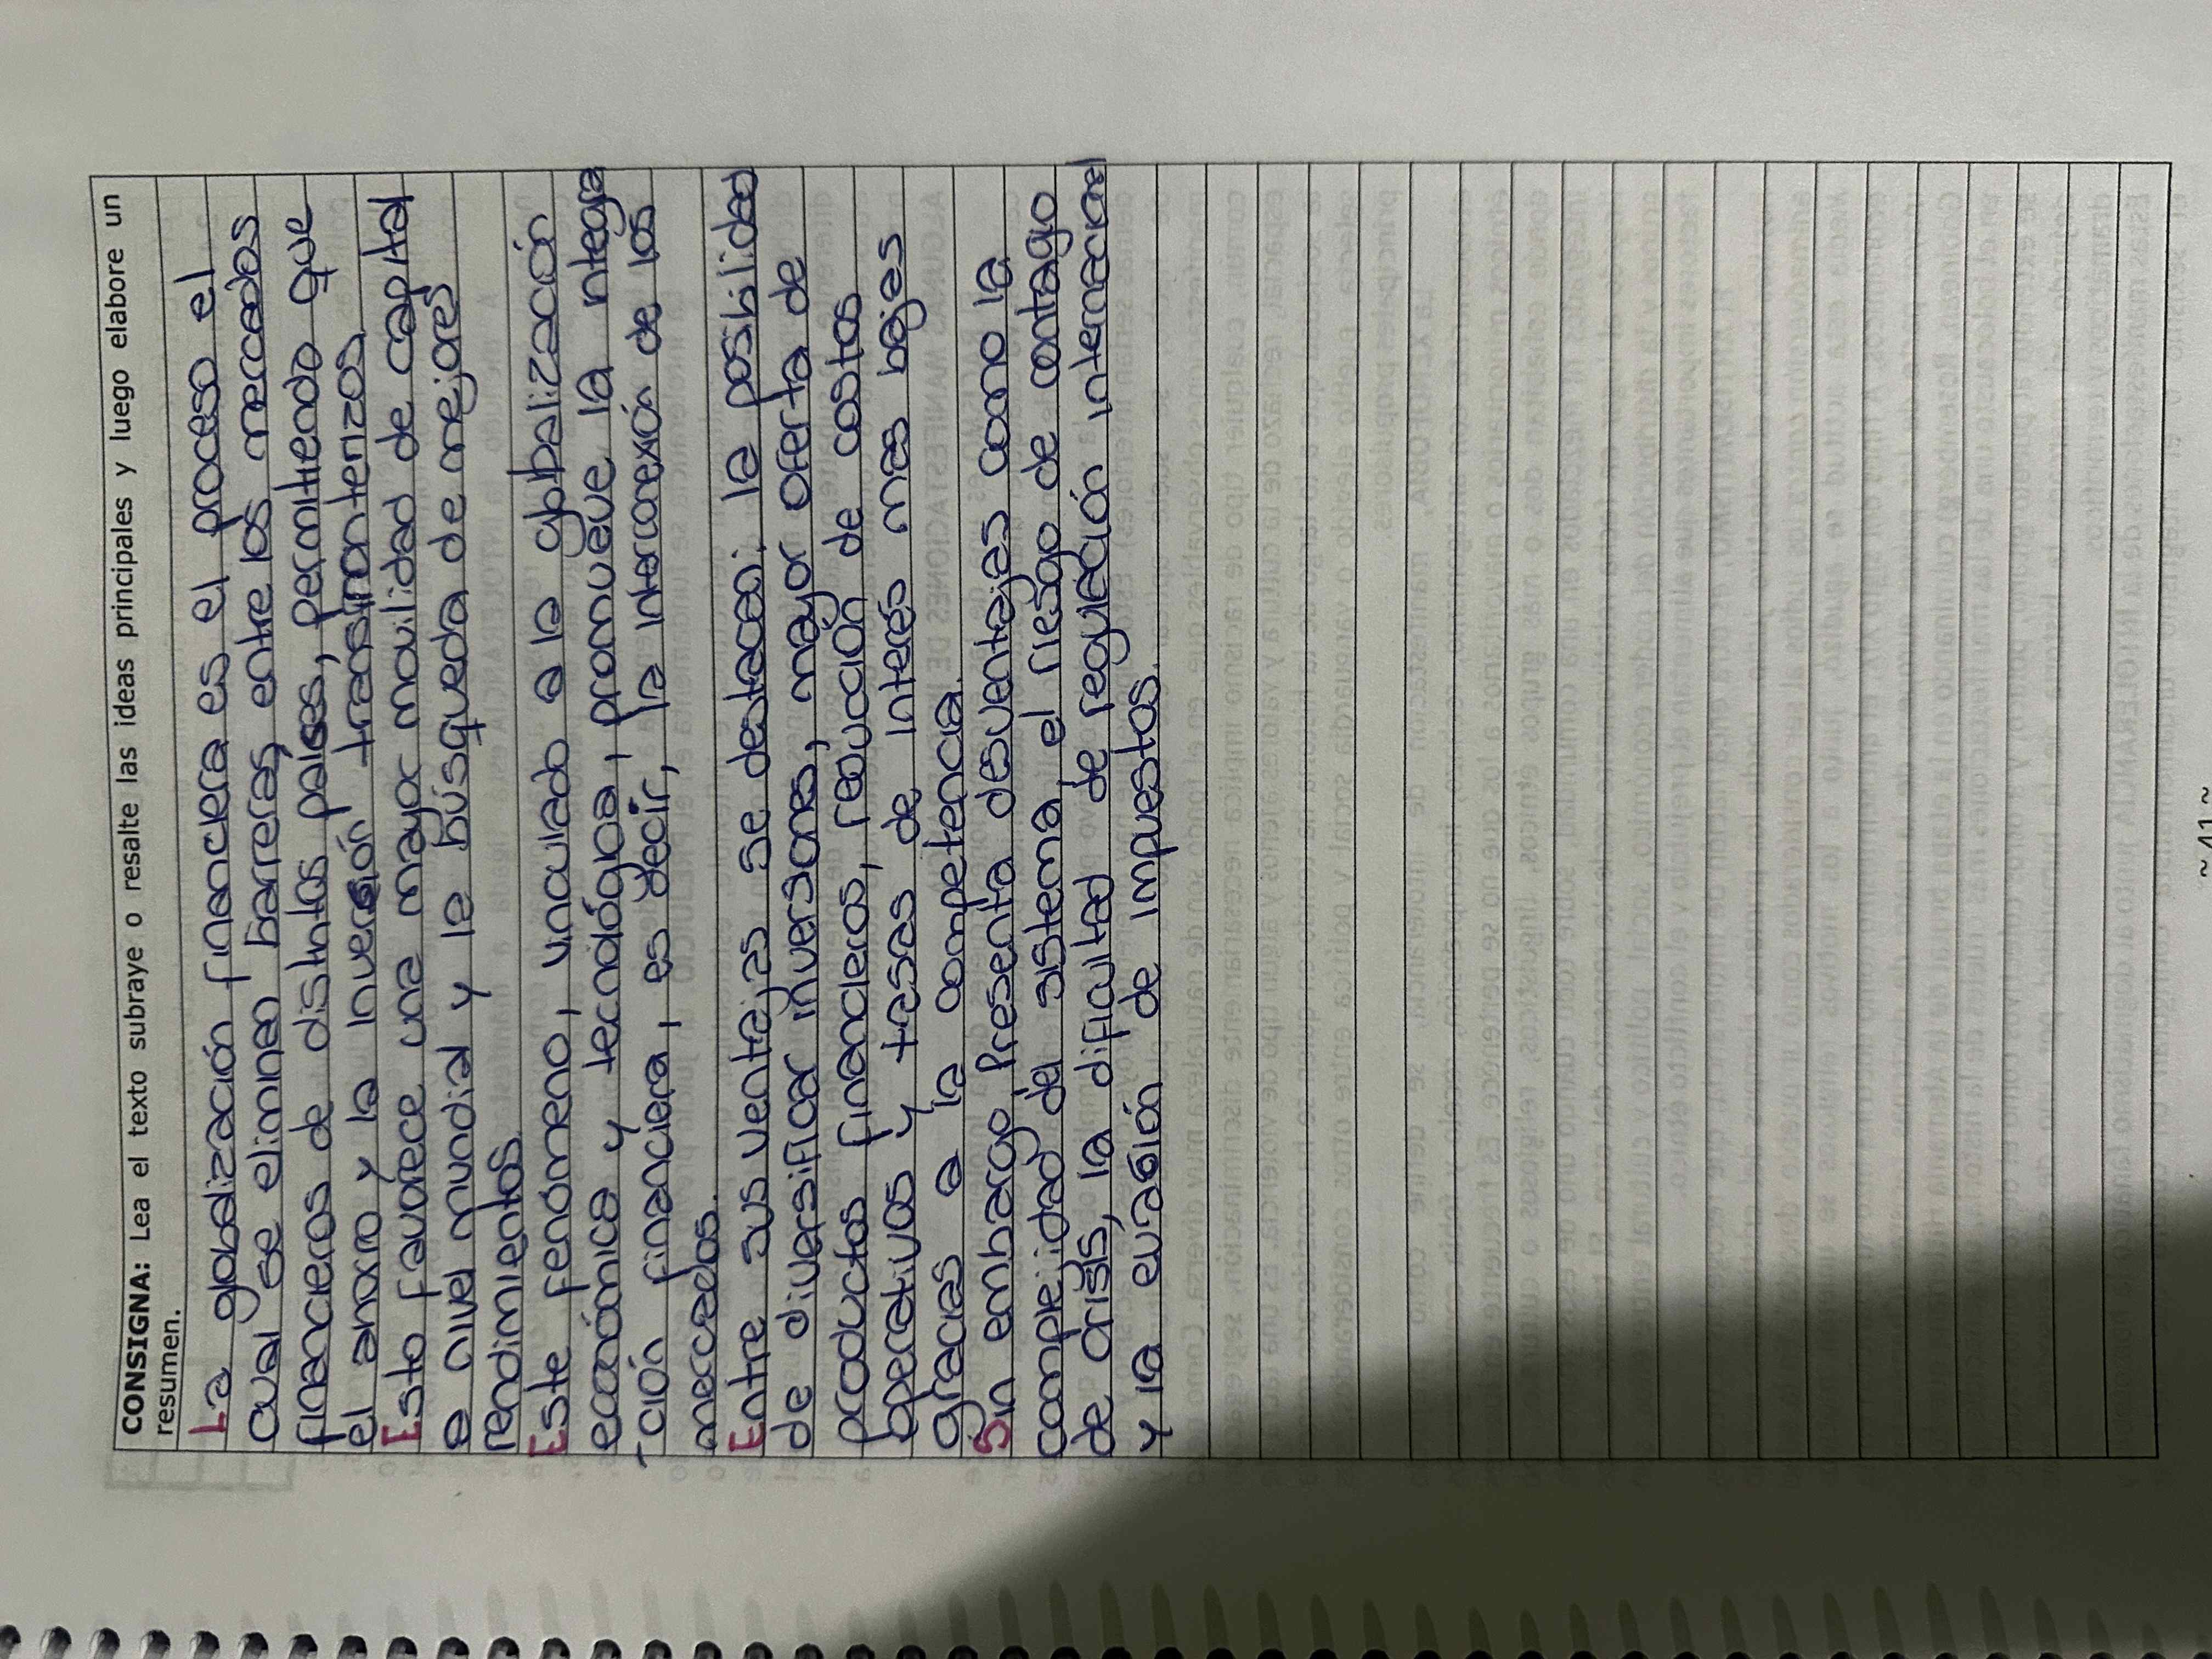 CONSIGNA: Lea el texto subraye o resalte las ideas principales y luego elabore un
resumen.
La globalización financiera es el proceso el
cual se eliminan barreras entre los mercados
financieros de distintos países, permitiendo que
el ahorro y la inversión trasfronterizos
Esto favorece una mayor movilidad de capital
a nivel mundial y la búsqueda de mejores
rendimientos.
Este fenomeno, vinculado a la globalización
económica y tecnológica, promueve la integra
-ción financiera, es decir, la interconexión de los
mercados.
Entre sus ventajas se destacan: la posibilidad
de diversificar inversiones, mayor oferta de
productos financieros, reducción de costos
operativos y tasas de interés mas bajas
gracias a la competencia.
Sin embargo, Presenta desventajas como la
complejidad del sistema, el riesgo de contagio
de crisis, la dificultad de regulación internacional
y la evasión de impuestos.
~41~